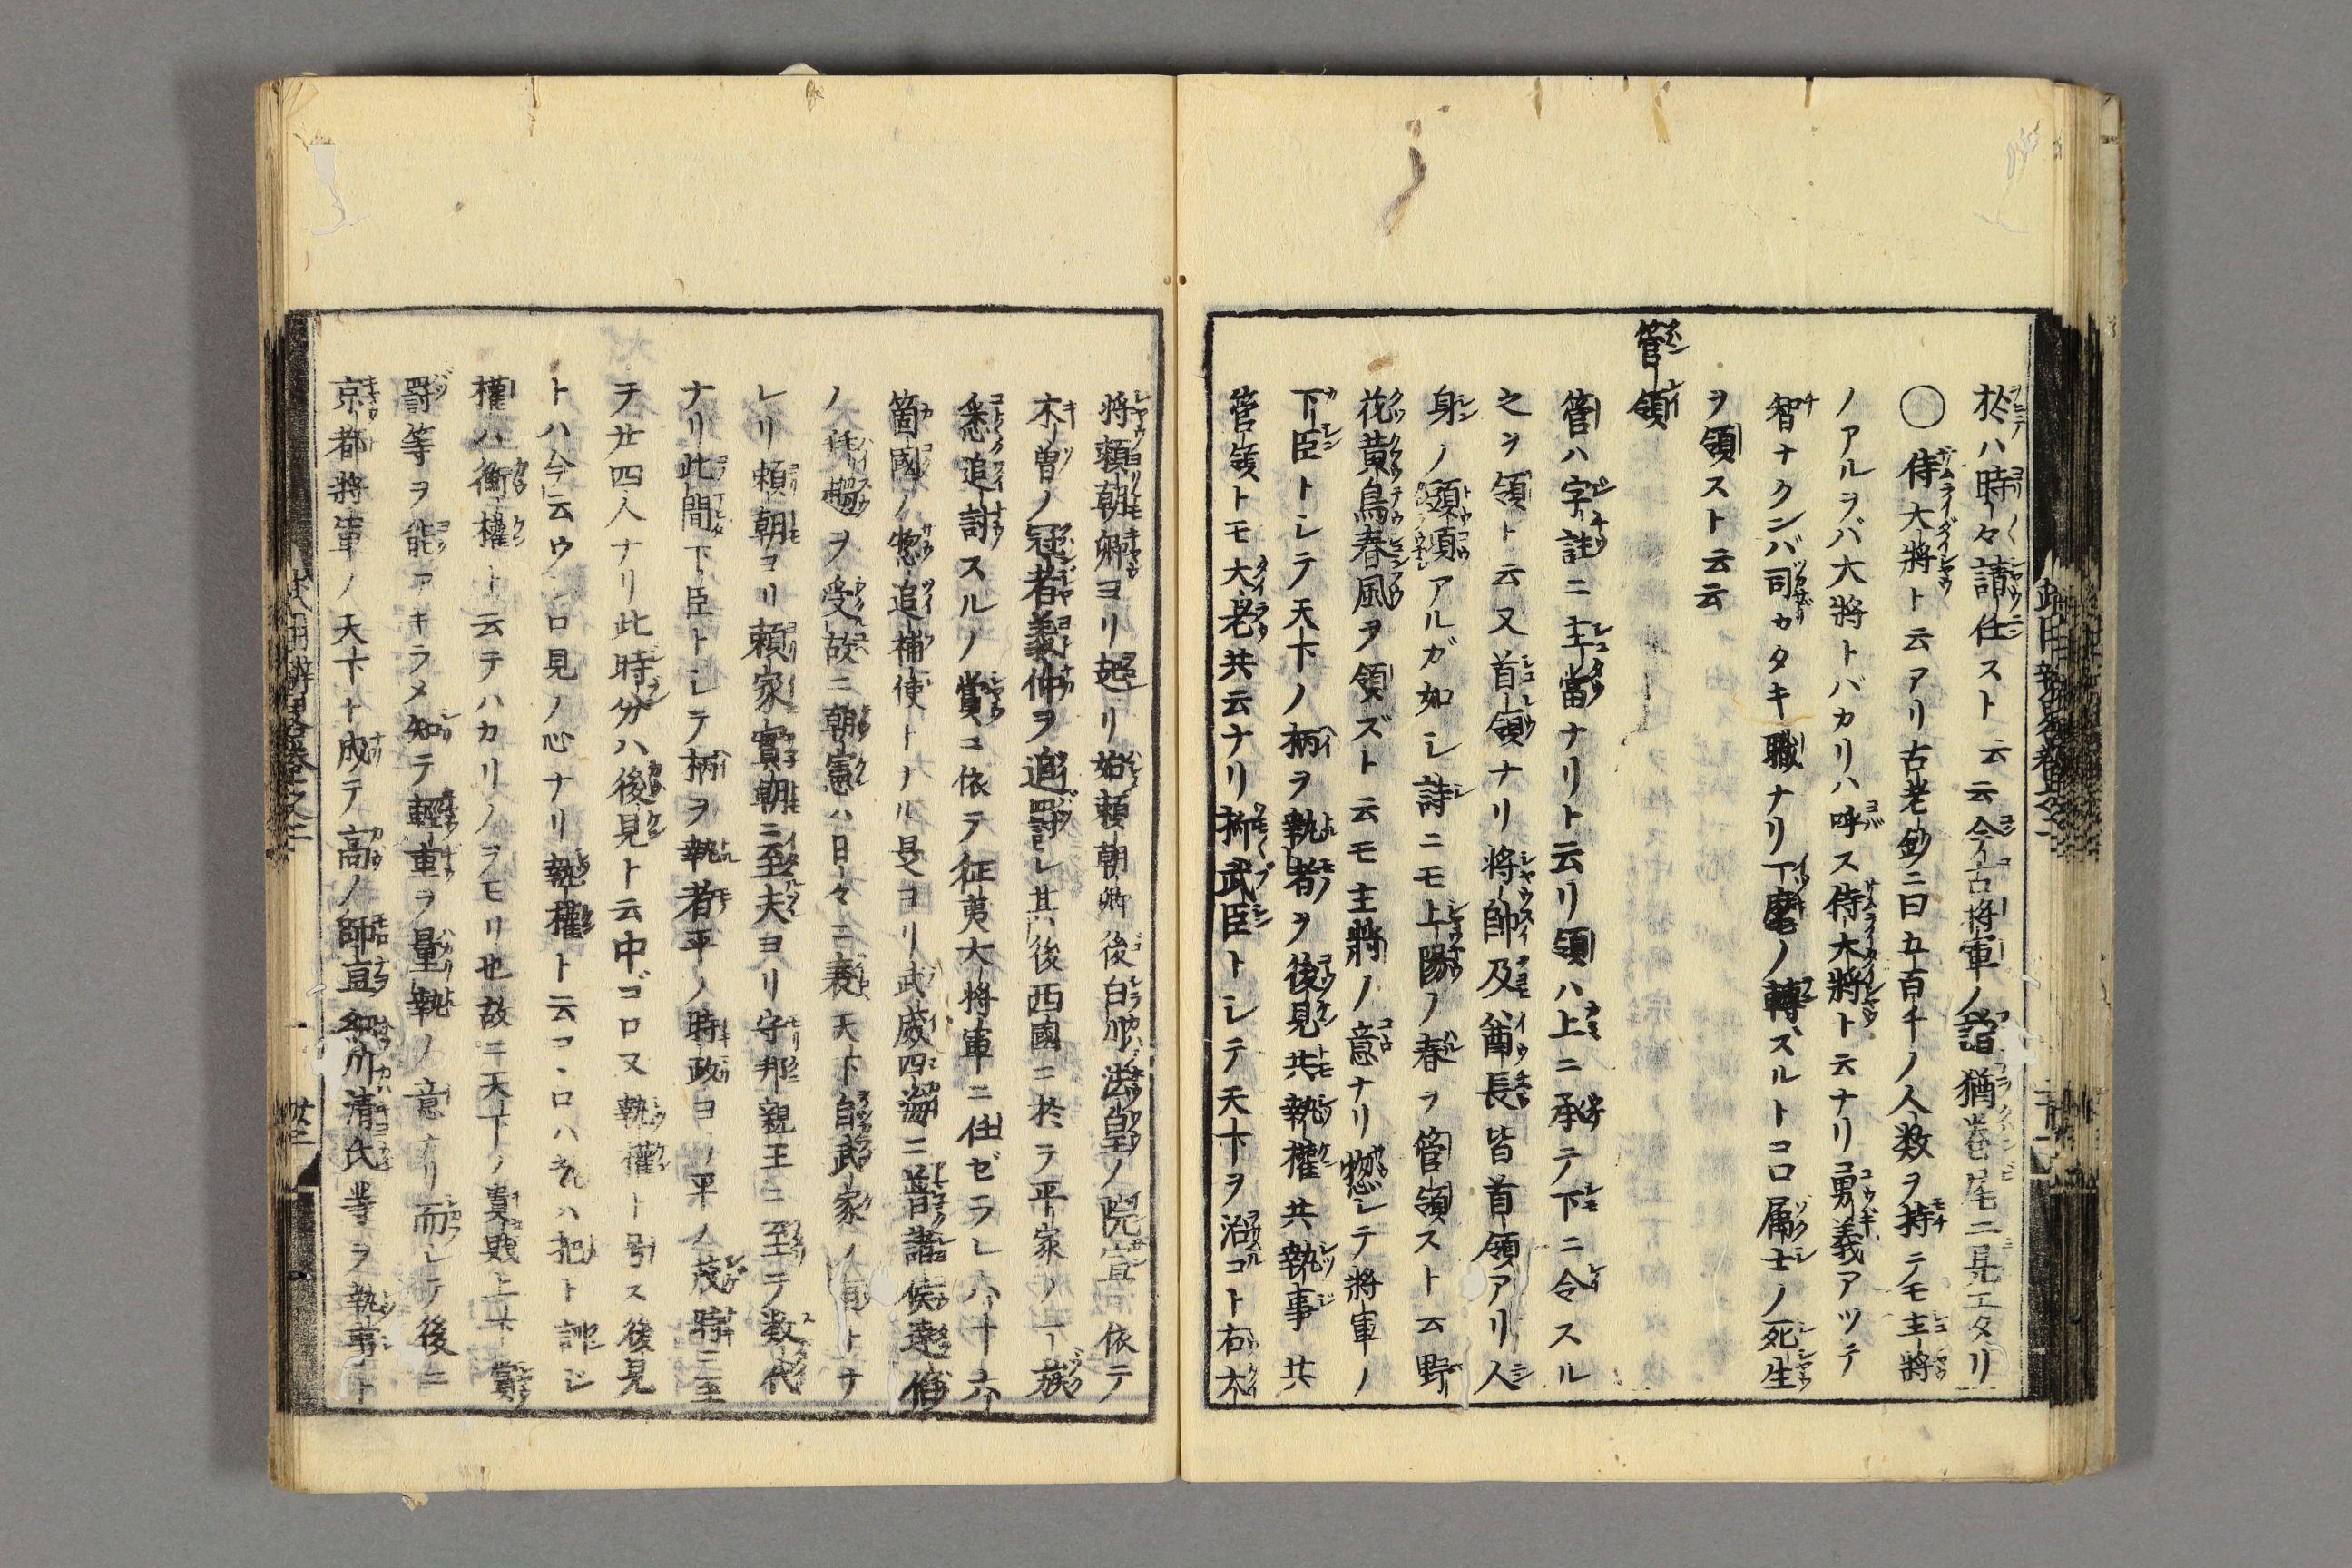 於ハ時々請仕スト云云今ノ古将軍ノ詣猶巻尾ニ見エタリ
○侍大將ト云アリ古老鈔ニ曰五百千ノ人数ヲ持テモ主將
ノアルヲバ大將トバカリハ呼ス侍大將ト云ナリ勇義アツテ
智ナクンバ司カタキ職ナリ一麾ノ轉スルトコロ属士ノ死生
ヲ領スト云云
管領
管ハ字註ニ主當ナリト云リ領ハ上ニ承テ下ニ令スル
之ヲ領ト云又首領ナリ将帥及酋長皆首領アリ人
身ノ頭項アルガ如シ詩ニモ上陽ノ春ヲ管領スト云野
花黄鳥春風ヲ領ズト云モ主將ノ意ナリ惣シテ將軍ノ
下臣トシテ天下ノ柄ヲ執者ヲ後見共執權共執事共
管領トモ大老共云ナリ抑武臣トシテ天下ヲ治コト右大
将頼朝卿ヨリ起リ始頼朝卿後白川法皇ノ院宣依テ
木曽ノ冠者義仲ヲ追罰シ其後西國ニ於ラ平家ノ一族
悉追討スルノ賞ニ依テ征夷大將軍ニ任ゼラレ六十六
箇國ノ惣追補使トナル是ヨリ武威四海ニ普諸侯連伯
ノ拝趨ヲ受故ニ朝憲ハ日々ニ衰天下自武家ノ有トナ
レリ頼朝ヨリ頼家實朝ニ至夫ヨリ守邦親王ニ至テ数代
ナリ此間下臣トシテ柄ヲ執者平ノ時政ヨリ平ノ茂時ニ至
ヲ廿四人ナリ此時分ハ後見ト云中ゴロ又執權ト号ス後見
トハ今云ウシロ見ノ心ナリ執權ト云コヽロハ執ハ把ト註シ
權ハ衡權ト云テハカリノヲモリ也故ニ天下ノ貴賎上下賞
罰等ヲ能アキラメ知テ輕重ヲ量執ノ意ナリ而シテ後ニ
京都將軍ノ天下ト成テ高ノ師直細川清氏等ヲ執事ト